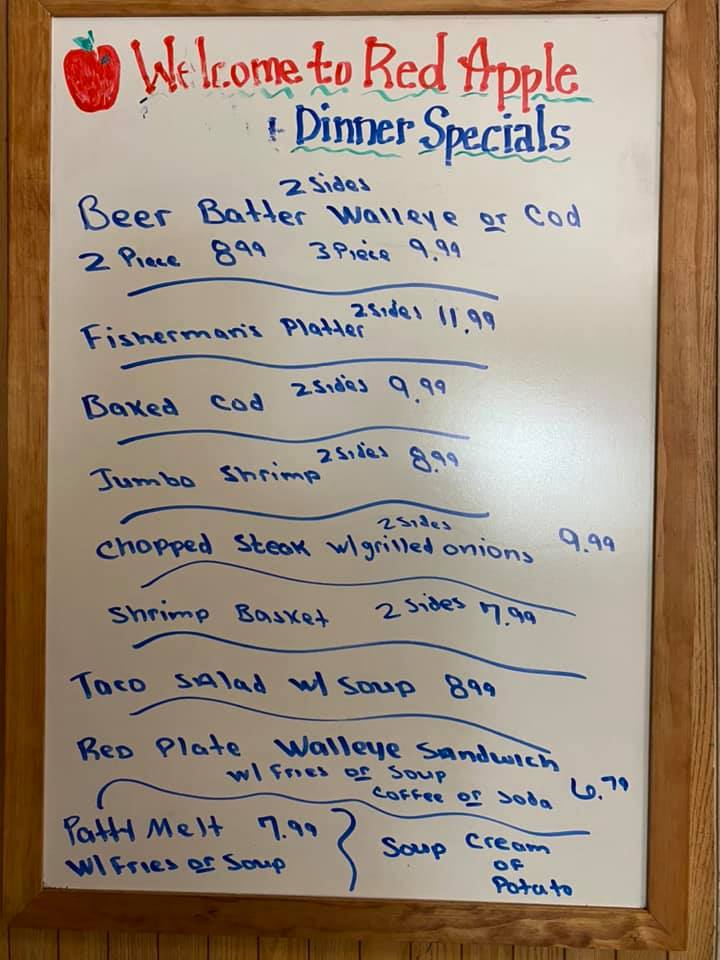 Welcome to Red Apple
Dinner Specials
2 Sides
Beer Batter Walleye or Cod
2 Piece 899 3 Piece 9.99
2 Sides 11.99
Fisherman's Platter
Baked Cod 2 Sides 9.99
Jumbo Shrimp 2 Sides 8.99
2 Sides
Chopped Steak w/grilled onions 9.99
Shrimp Basket 2 Sides 7.99
Taco Salad w/ Soup 899
Red Plate Walleye Sandwich
w/ Fries or Soup
Coffee or Soda 6.79
Patty Melt 7.99
w/ Fries or Soup
Soup Cream
of
Potato